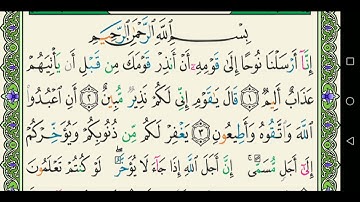 بِسْمِ اللَّهِ الرَّحْمَٰنِ الرَّحِيمِ
إِنَّا أَرْسَلْنَا نُوحًا إِلَىٰ قَوْمِهِ أَنْ أَنذِرْ قَوْمَكَ مِن قَبْلِ أَن يَأْتِيَهُمْ
عَذَابٌ أَلِيمٌ ۝١ قَالَ يَٰقَوْمِ إِنِّي لَكُمْ نَذِيرٌ مُّبِينٌ ۝٢ أَنِ اعْبُدُوا
اللَّهَ وَاتَّقُوهُ وَأَطِيعُونِ ۝٣ يَغْفِرْ لَكُم مِّن ذُنُوبِكُمْ وَيُؤَخِّرْكُمْ
إِلَىٰ أَجَلٍ مُّسَمًّى ۚ إِنَّ أَجَلَ اللَّهِ إِذَا جَاءَ لَا يُؤَخَّرُ ۖ لَوْ كُنتُمْ تَعْلَمُونَ